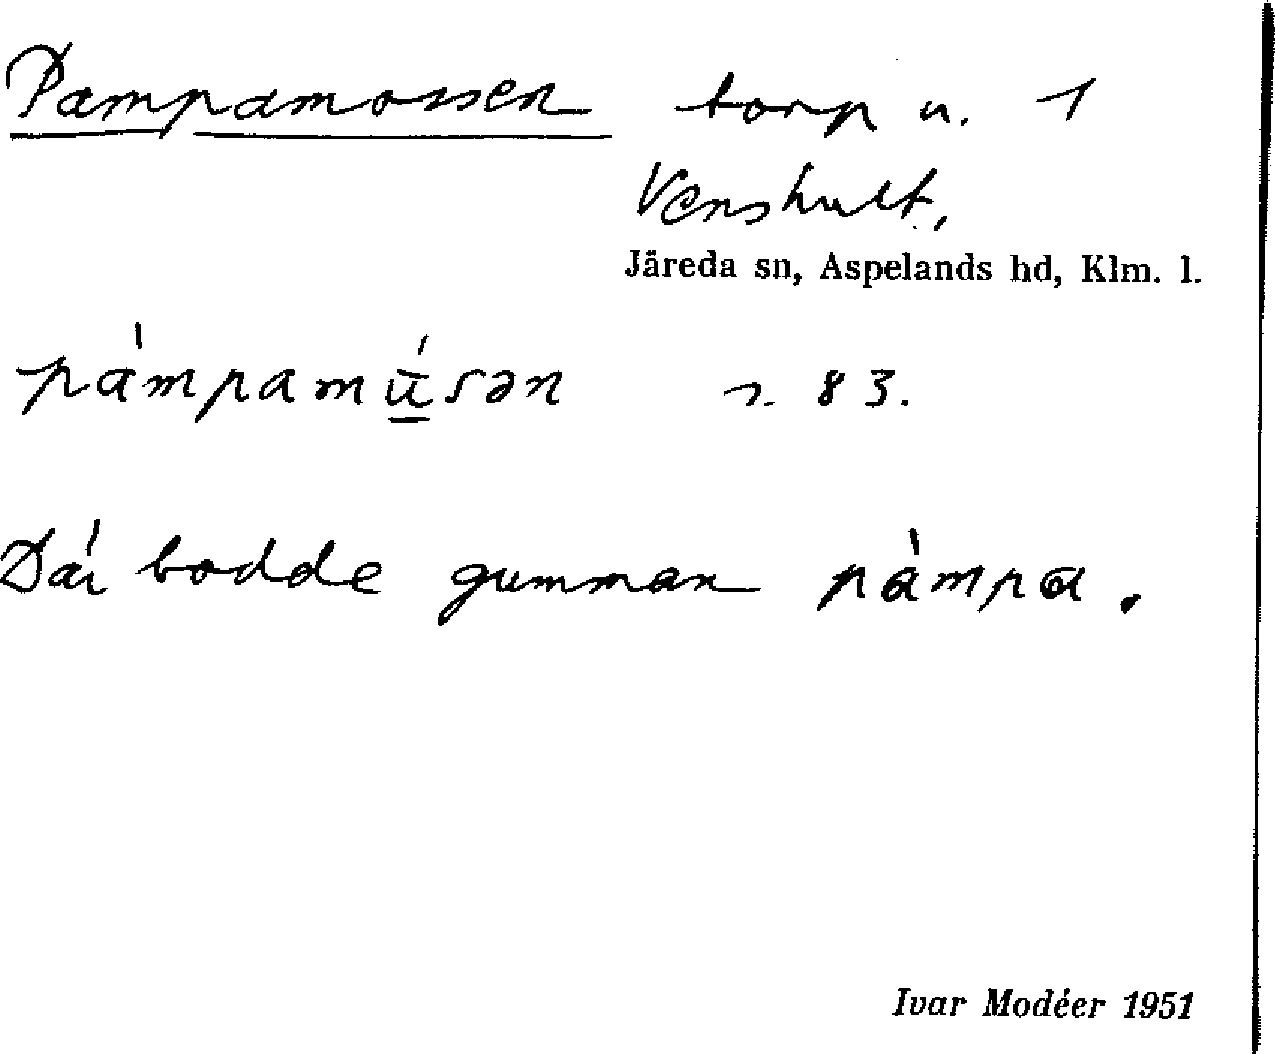 Pampamossen torp u. 1
Venshult,
Järeda sn, Aspelands hd, Klm. l.
pàmpamúsən s. 83.
Där bodde gumman pàmpa.
Ivar Modéer 1951